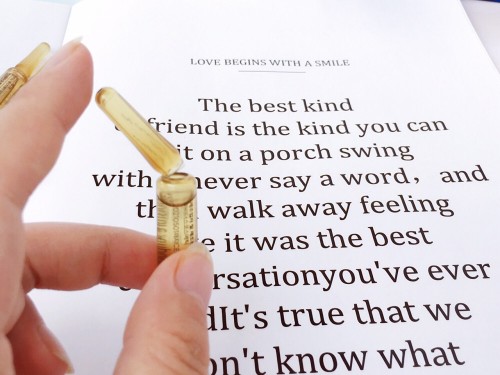 LOVE BEGINS WITH A SMILE
The best kind
friend is the kind you can
it on a porch swing
with never say a word, and
walk away feeling
it was the best
rsationyou've ever
dIt's true that we
n't know what